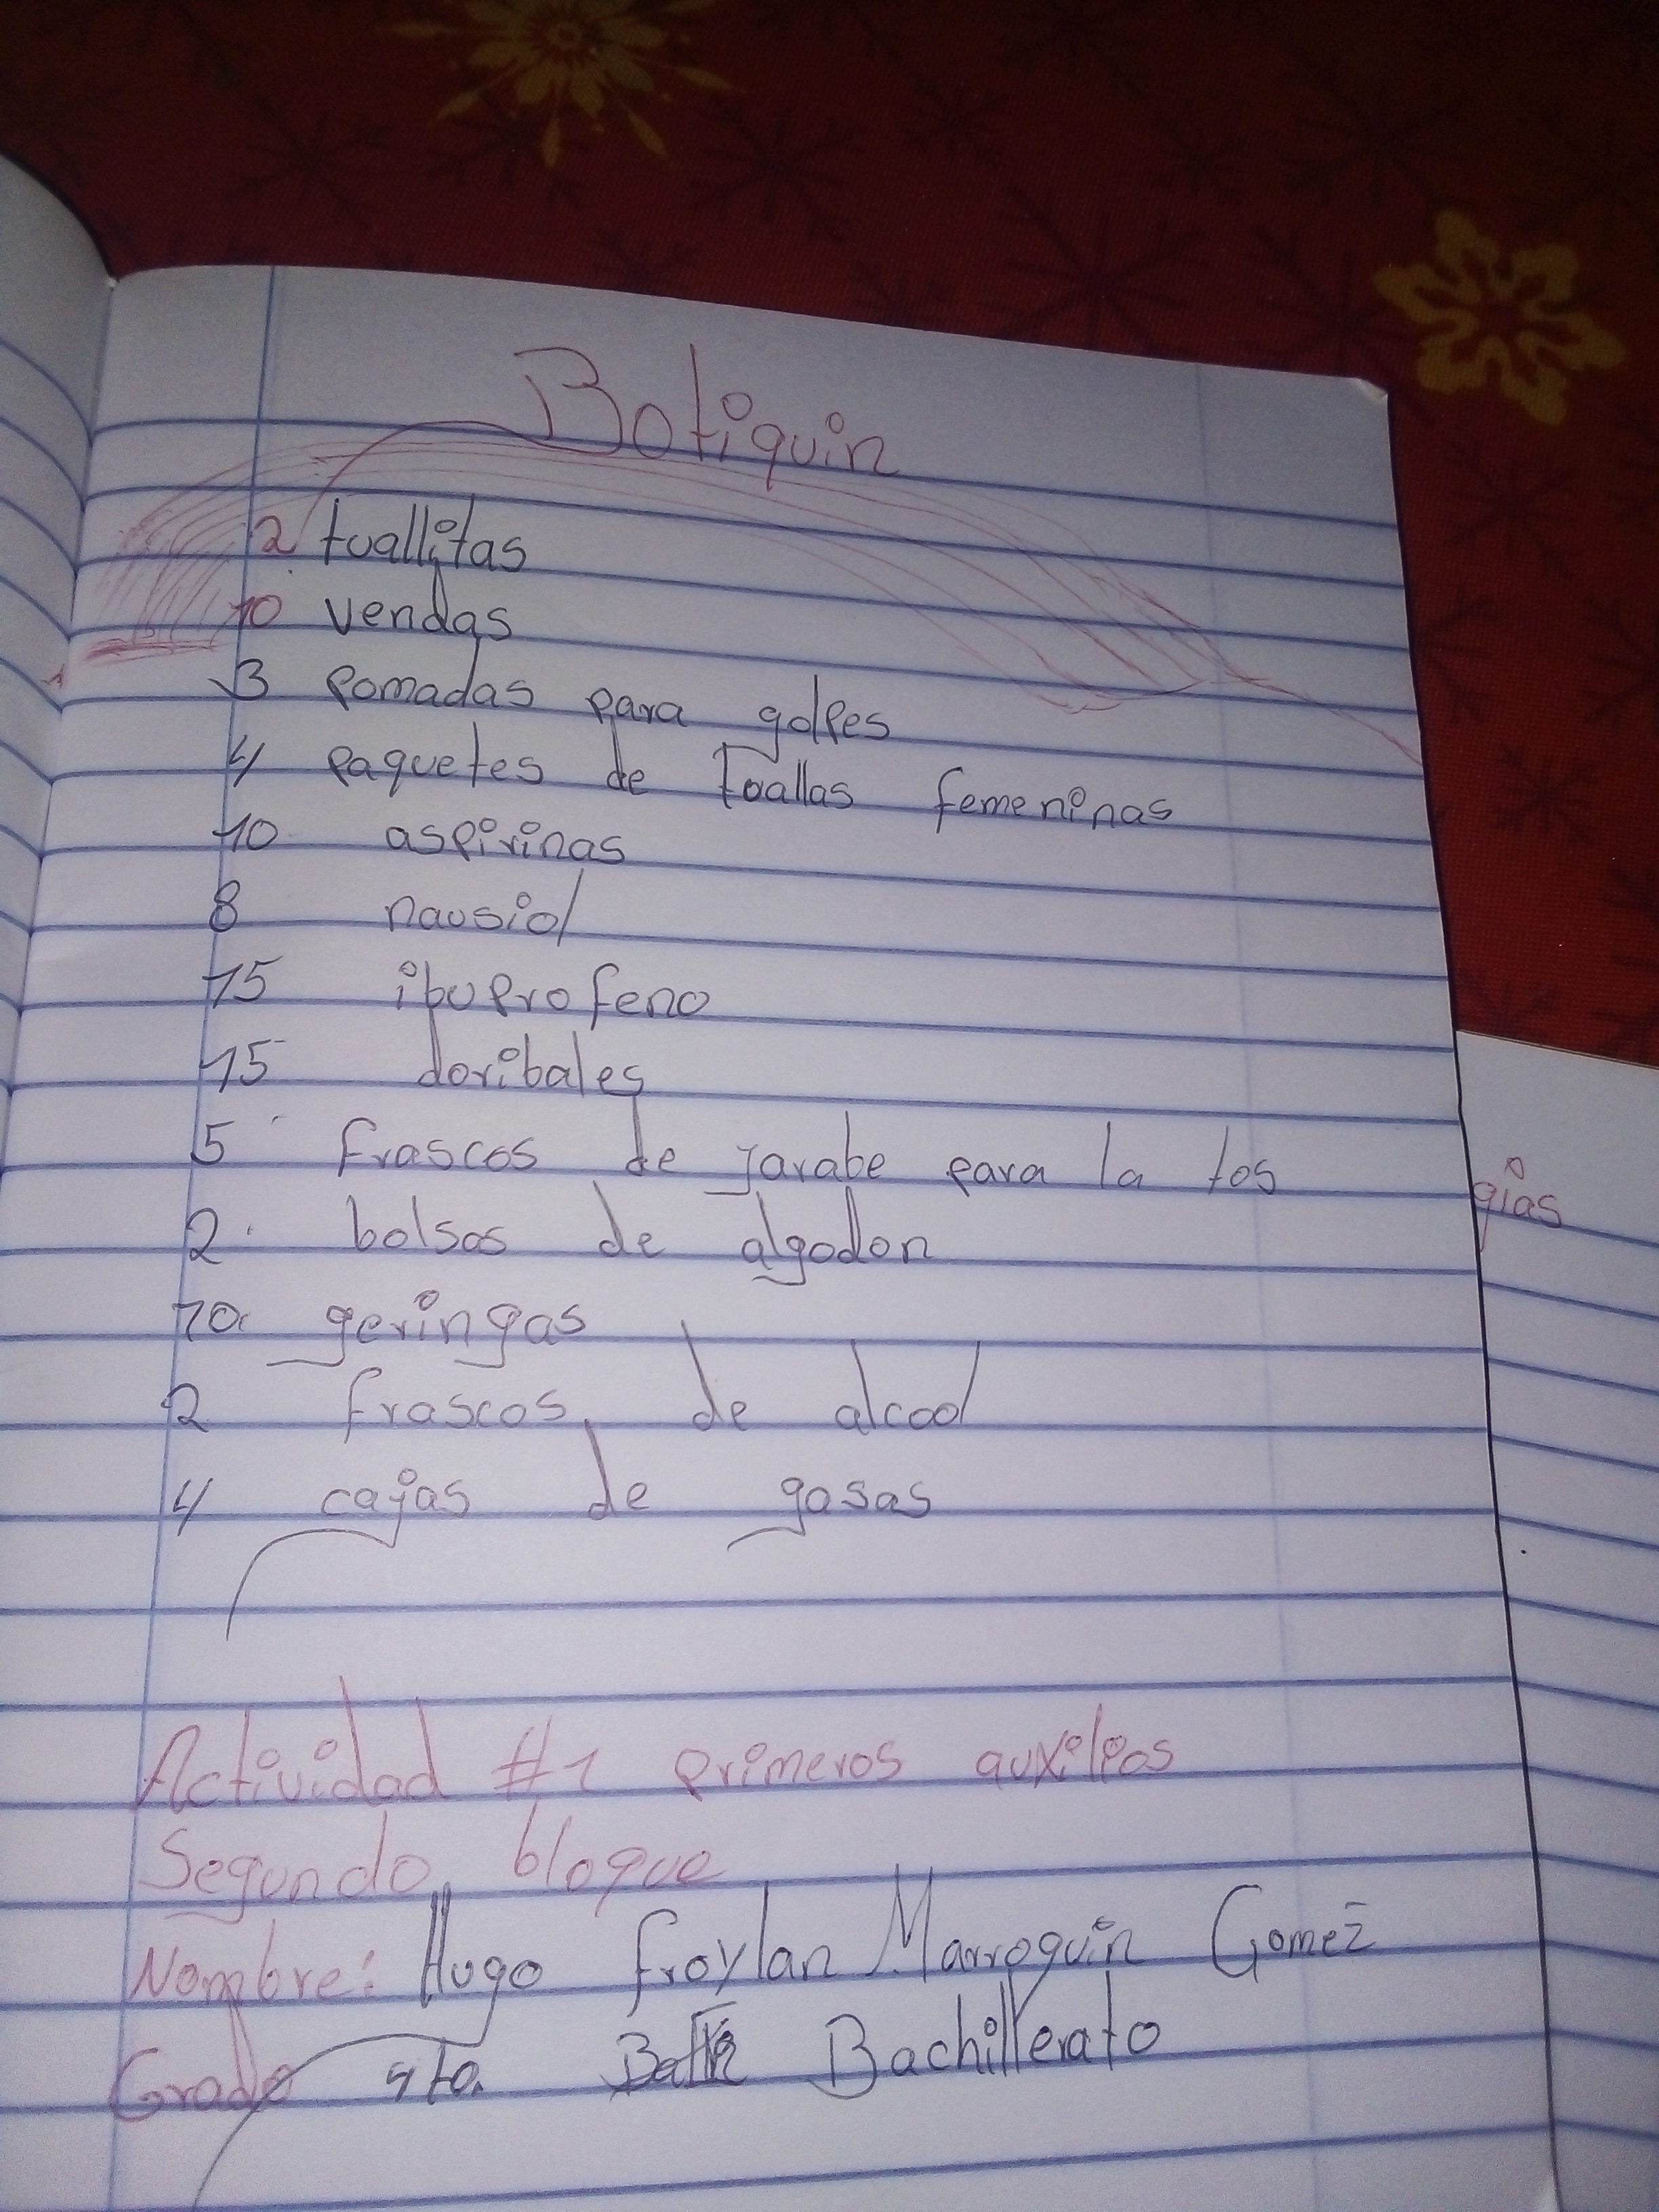 Botiquin
2 tuallitas
10 vendas
3 pomadas para golpes
4 paquetes de toallas femeninas
10 aspirinas
8 nausiol
15 ibuprofeno
15 doribales
5 frascos de jarabe para la tos
2 bolsas de algodon
10 geringas
2 frascos de alcool
4 cajas de gasas
Actividad #1 primeros auxilios
Segundo bloque
Nombre: Hugo Froylan Marroquin Gomez
Grado 4to. Bachillerato
gias